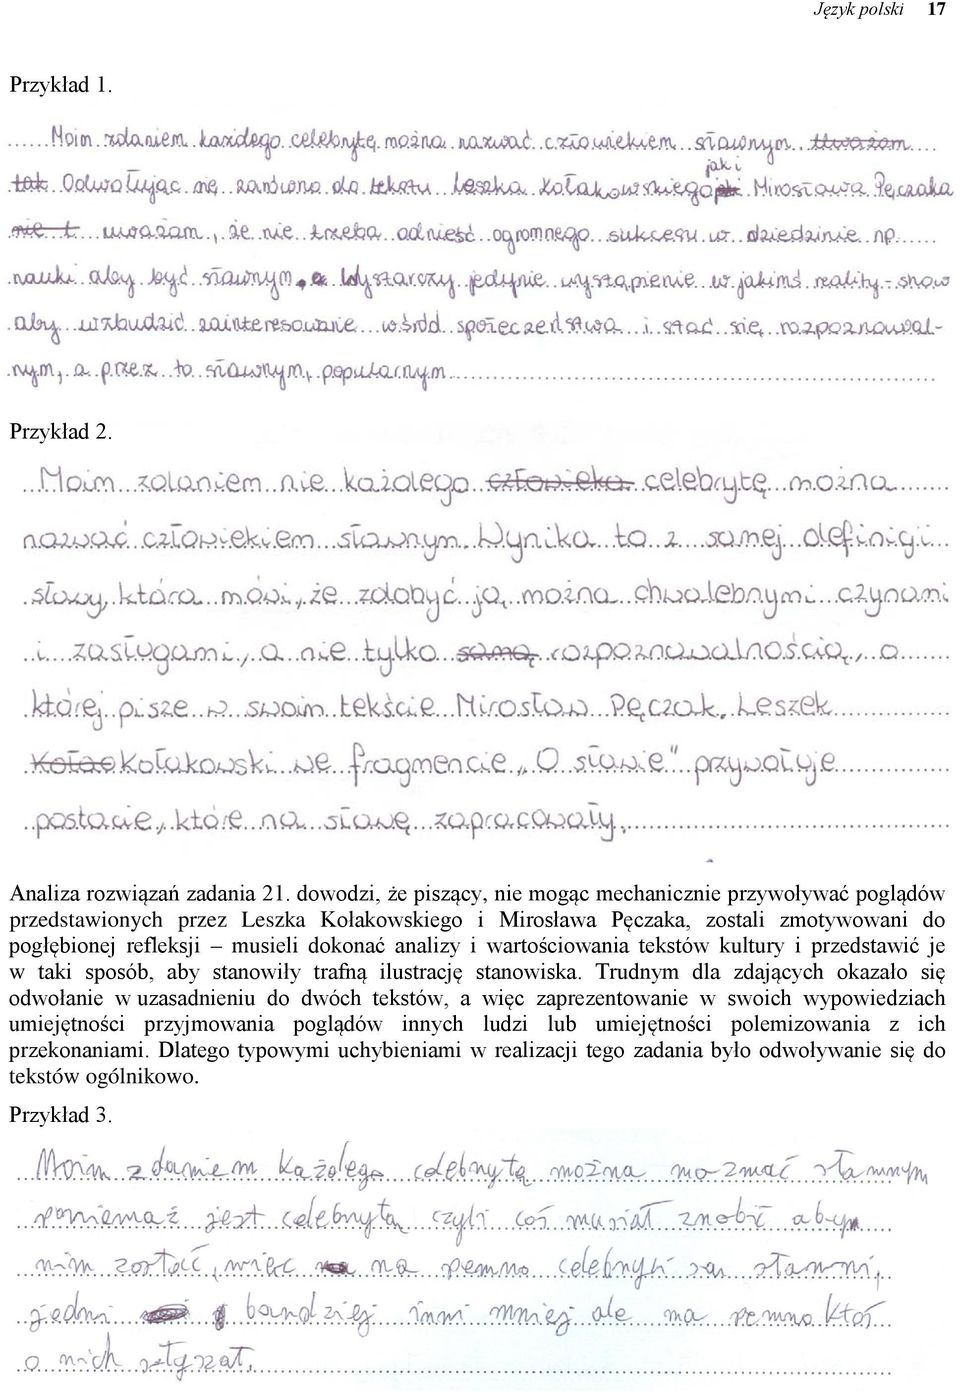 Język polski 17
Przykład 1.
Moim zdaniem każdego celebrytę można nazwać człowiekiem sławnym. Uważam
tak. Odwołując się zarówno do tekstu Leszka Kołakowskiego jak i Mirosława Pęczaka
nie t uważam, że nie trzeba odnieść ogromnego sukcesu w dziedzinie np.
nauki aby być sławnym. a Wystarczy jedynie wystąpienie w jakimś reality-show
aby wzbudzić zainteresowanie wśród społeczeństwa i stać się rozpoznawal-
nym, a przez to sławnym, popularnym.
Przykład 2.
Moim zdaniem nie każdego człowieka celebrytę można
nazwać człowiekiem sławnym. Wynika to z samej definicji
sławy, która mówi, że zdobyć ją można chwalebnymi czynami
i zasługami, a nie tylko samą rozpoznawalnością, o
której pisze w swoim tekście Mirosław Pęczak. Leszek
Kołao Kołakowski we fragmencie „O sławie" przywołuje
postacie, które na sławę zapracowały.
Analiza rozwiązań zadania 21. dowodzi, że piszący, nie mogąc mechanicznie przywoływać poglądów
przedstawionych przez Leszka Kołakowskiego i Mirosława Pęczaka, zostali zmotywowani do
pogłębionej refleksji – musieli dokonać analizy i wartościowania tekstów kultury i przedstawić je
w taki sposób, aby stanowiły trafną ilustrację stanowiska. Trudnym dla zdających okazało się
odwołanie w uzasadnieniu do dwóch tekstów, a więc zaprezentowanie w swoich wypowiedziach
umiejętności przyjmowania poglądów innych ludzi lub umiejętności polemizowania z ich
przekonaniami. Dlatego typowymi uchybieniami w realizacji tego zadania było odwoływanie się do
tekstów ogólnikowo.
Przykład 3.
Moim zdaniem każdego celebrytą można nazwać sławnym
ponieważ jest celebrytą czyli coś musiał zrobić abym
nim zostać, więc na pewno celebryci są sławni,
jedni bardziej inni mniej ale na pewno ktoś
o nich słyszał.